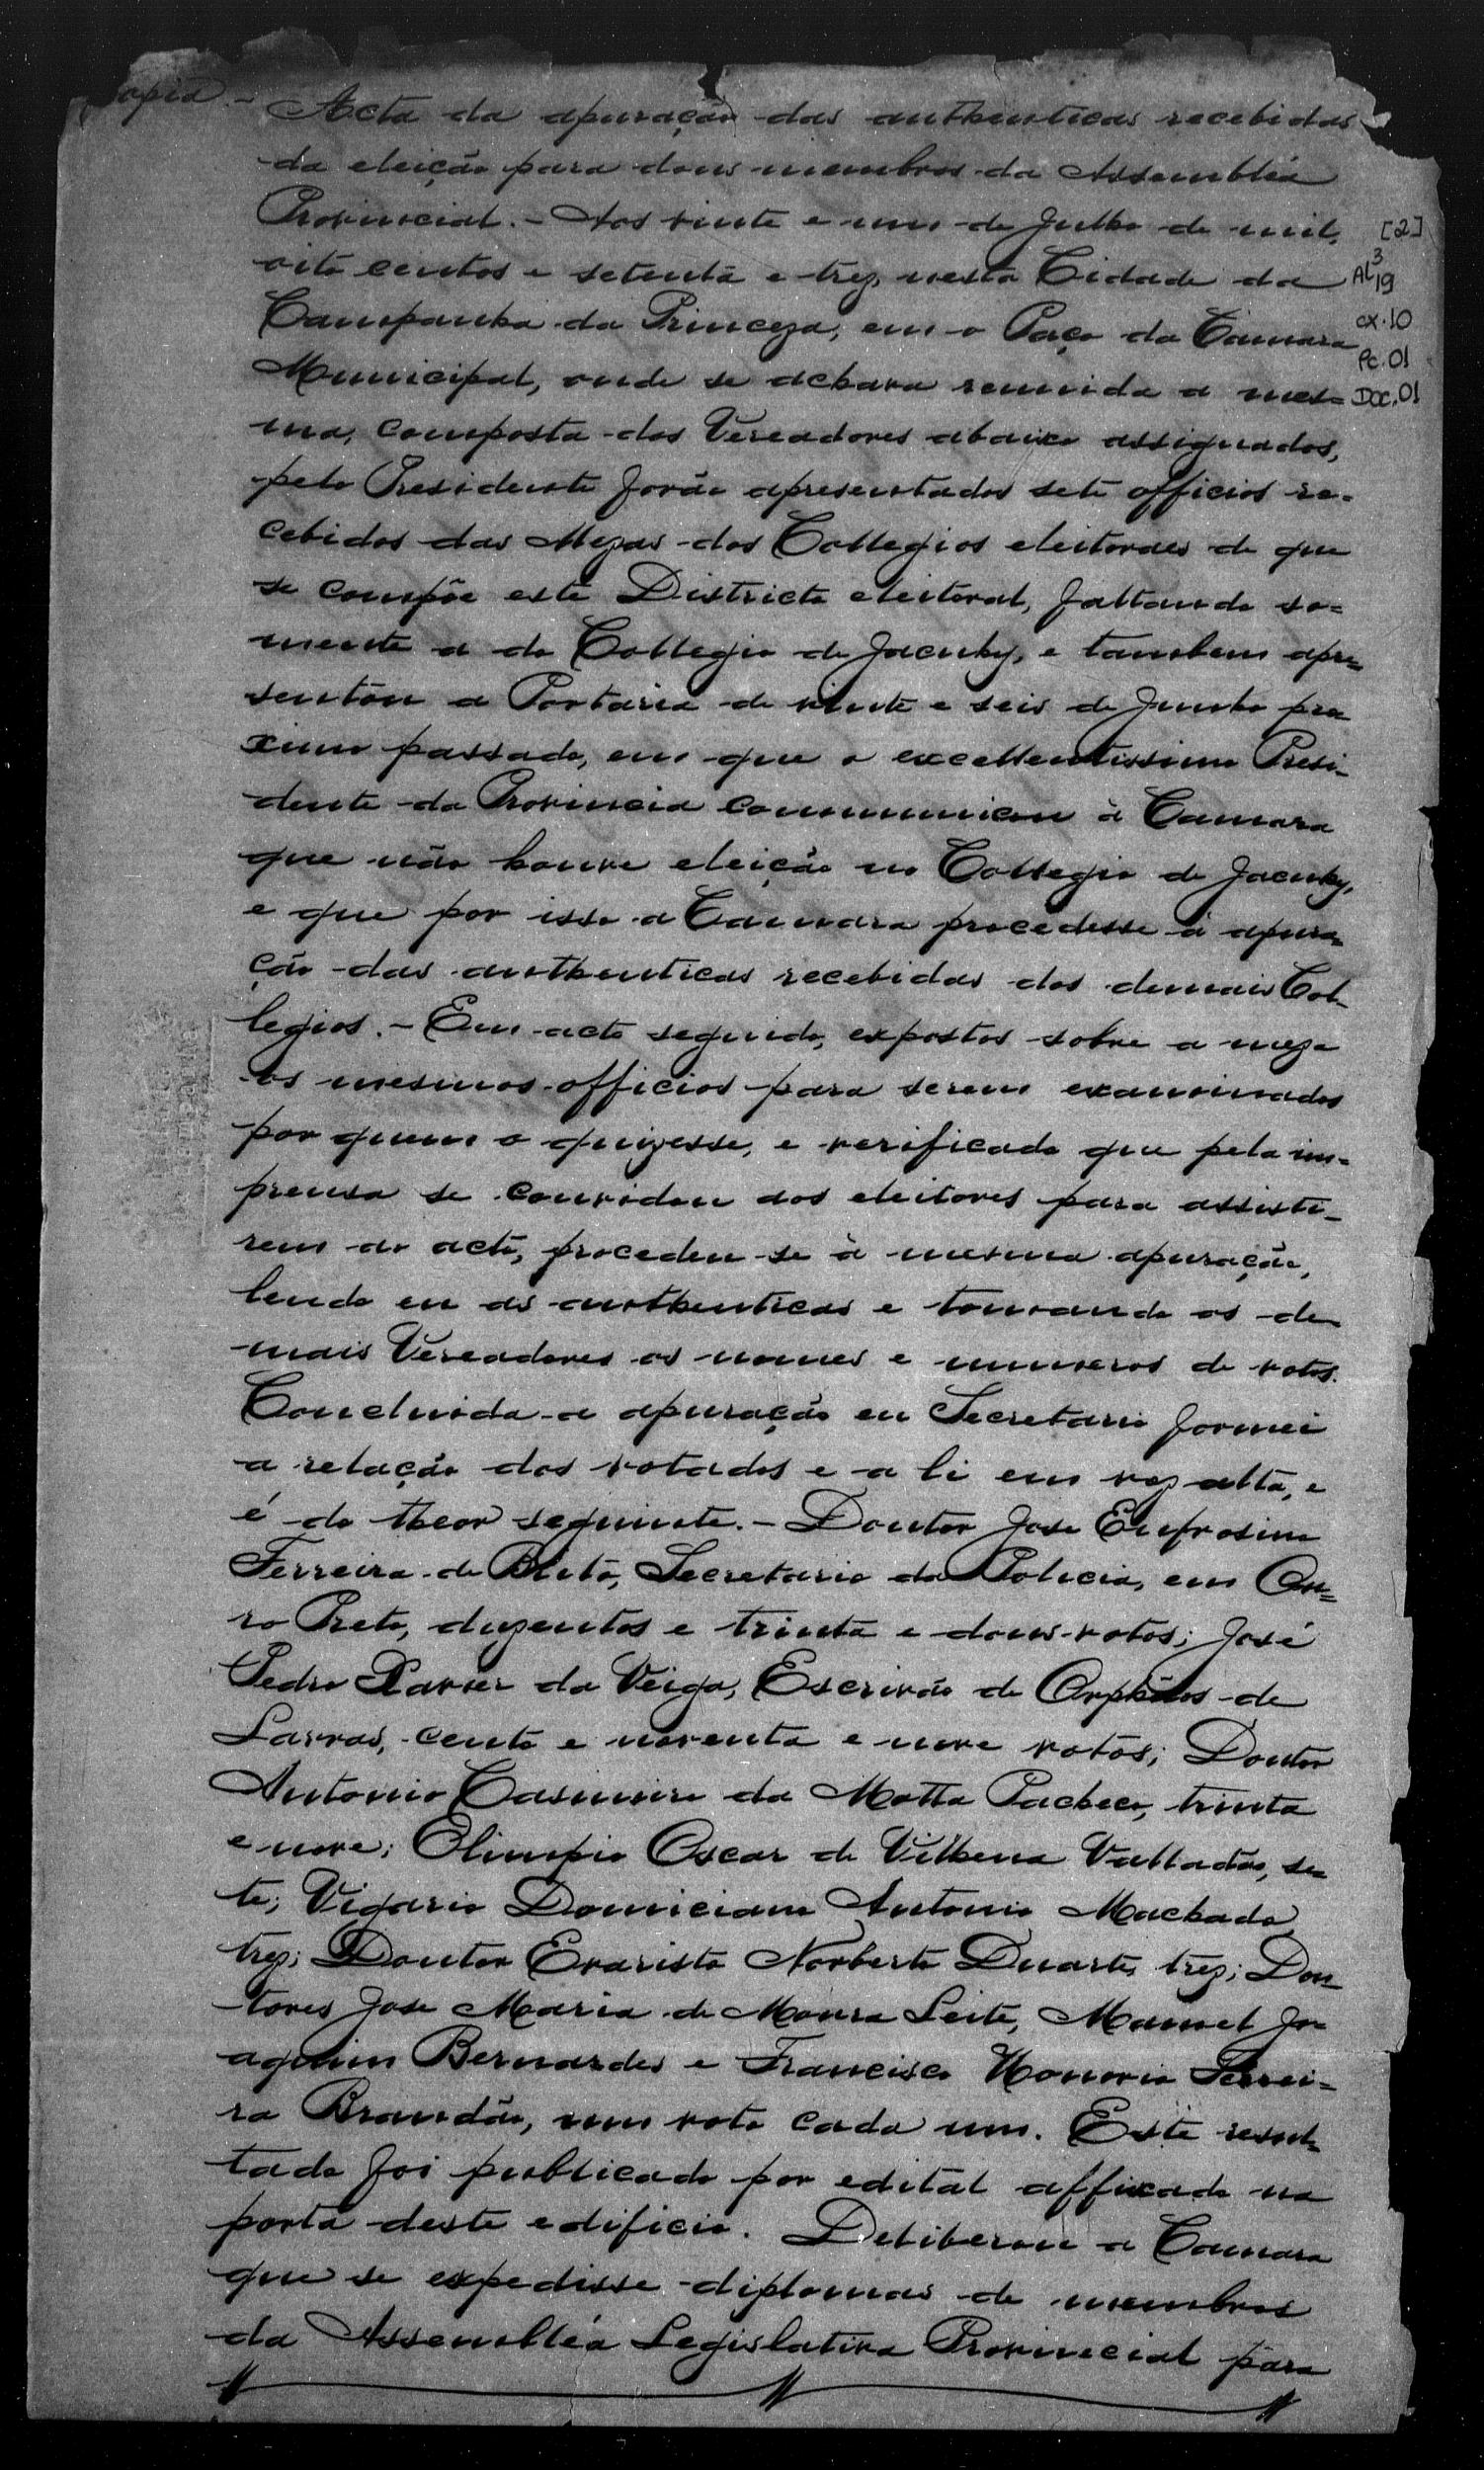 Copia - Acta da apuração das authenticas recebidas
da eleição para dous membros da Assembléa
Provincial. - Aos vinte e um de Julho de mil,
oito centos e setenta e trez, nesta Cidade da
Campanha da Princeza, em o Paço da Camara
Municipal, onde se achava reunida a mes=
ma, composta dos Vereadores abaixo assignados,
pelo Presidente forão apresentados sete officios re=
cebidos das Mezas dos Collegios eleitoraes de que
se compõe este Districto eleitoral, faltando so=
mente a do Collegio de Jacuhy, e tambem apre=
sentou a Portaria de vinte e seis de Junho pro
ximo passado, em que o excellentissimo Presi-
dente da Provincia communicou á Camara
que não houve eleição no Collegio de Jacuhy,
e que por isso a Camara procedesse á apura=
ção das authenticas recebidas dos demais Col-
legios. - Em acto seguido, expostos sobre a meza
os mesmos officios para serem examinados
por quem o quizesse, e verificado que pela im=
prensa se convidou aos eleitores para assisti-
rem ao acto, procedeu-se á mesma apuração,
lendo eu as authenticas e tomando os de=
mais Vereadores os nomes e numeros de votos.
Concluida a apuração eu Secretario formei
a relação dos votados e a li em voz alta, e
é do theor seguinte. - Doutor José Eufrosino
Ferreira de Brito, Secretario da Policia, em Ou=
ro Preto, duzentos e trinta e dous votos; José
Pedro Xavier da Veiga, Escrivão de Orphãos de
Lavras, cento e noventa e nove votos; Doutor
Antonio Casimiro da Motta Pacheco, trinta
e nove; Olimpio Oscar de Vilhena Valladão, se=
te; Vigario Domiciano Antonio Machado,
trez; Doutor Evaristo Norberto Duarte, trez; Dou=
tores José Maria de Moura Leite, Manoel Jo
aquim Bernardes e Francisco Honorio Ferrei=
ra Brandão, um voto cada um. Este resul=
tado foi publicado por edital affixado na
porta deste edificio. Deliberou a Camara
que se expedisse diplomas de membros
da Assembléa Legislativa Provincial para
[2]
AL³19
cx.10
Pc.01
Doc.01